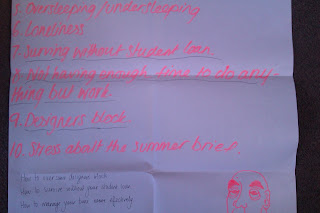 5. Oversleeping/undersleeping
6. Loneliness
7. Surviving without student loan.
8. Not having enough time to do any-
thing but work.
9. Designers block.
10. Stress about the summer brief.
How to over come designer block
How to survive without your student loan
How to manage your time more effectively